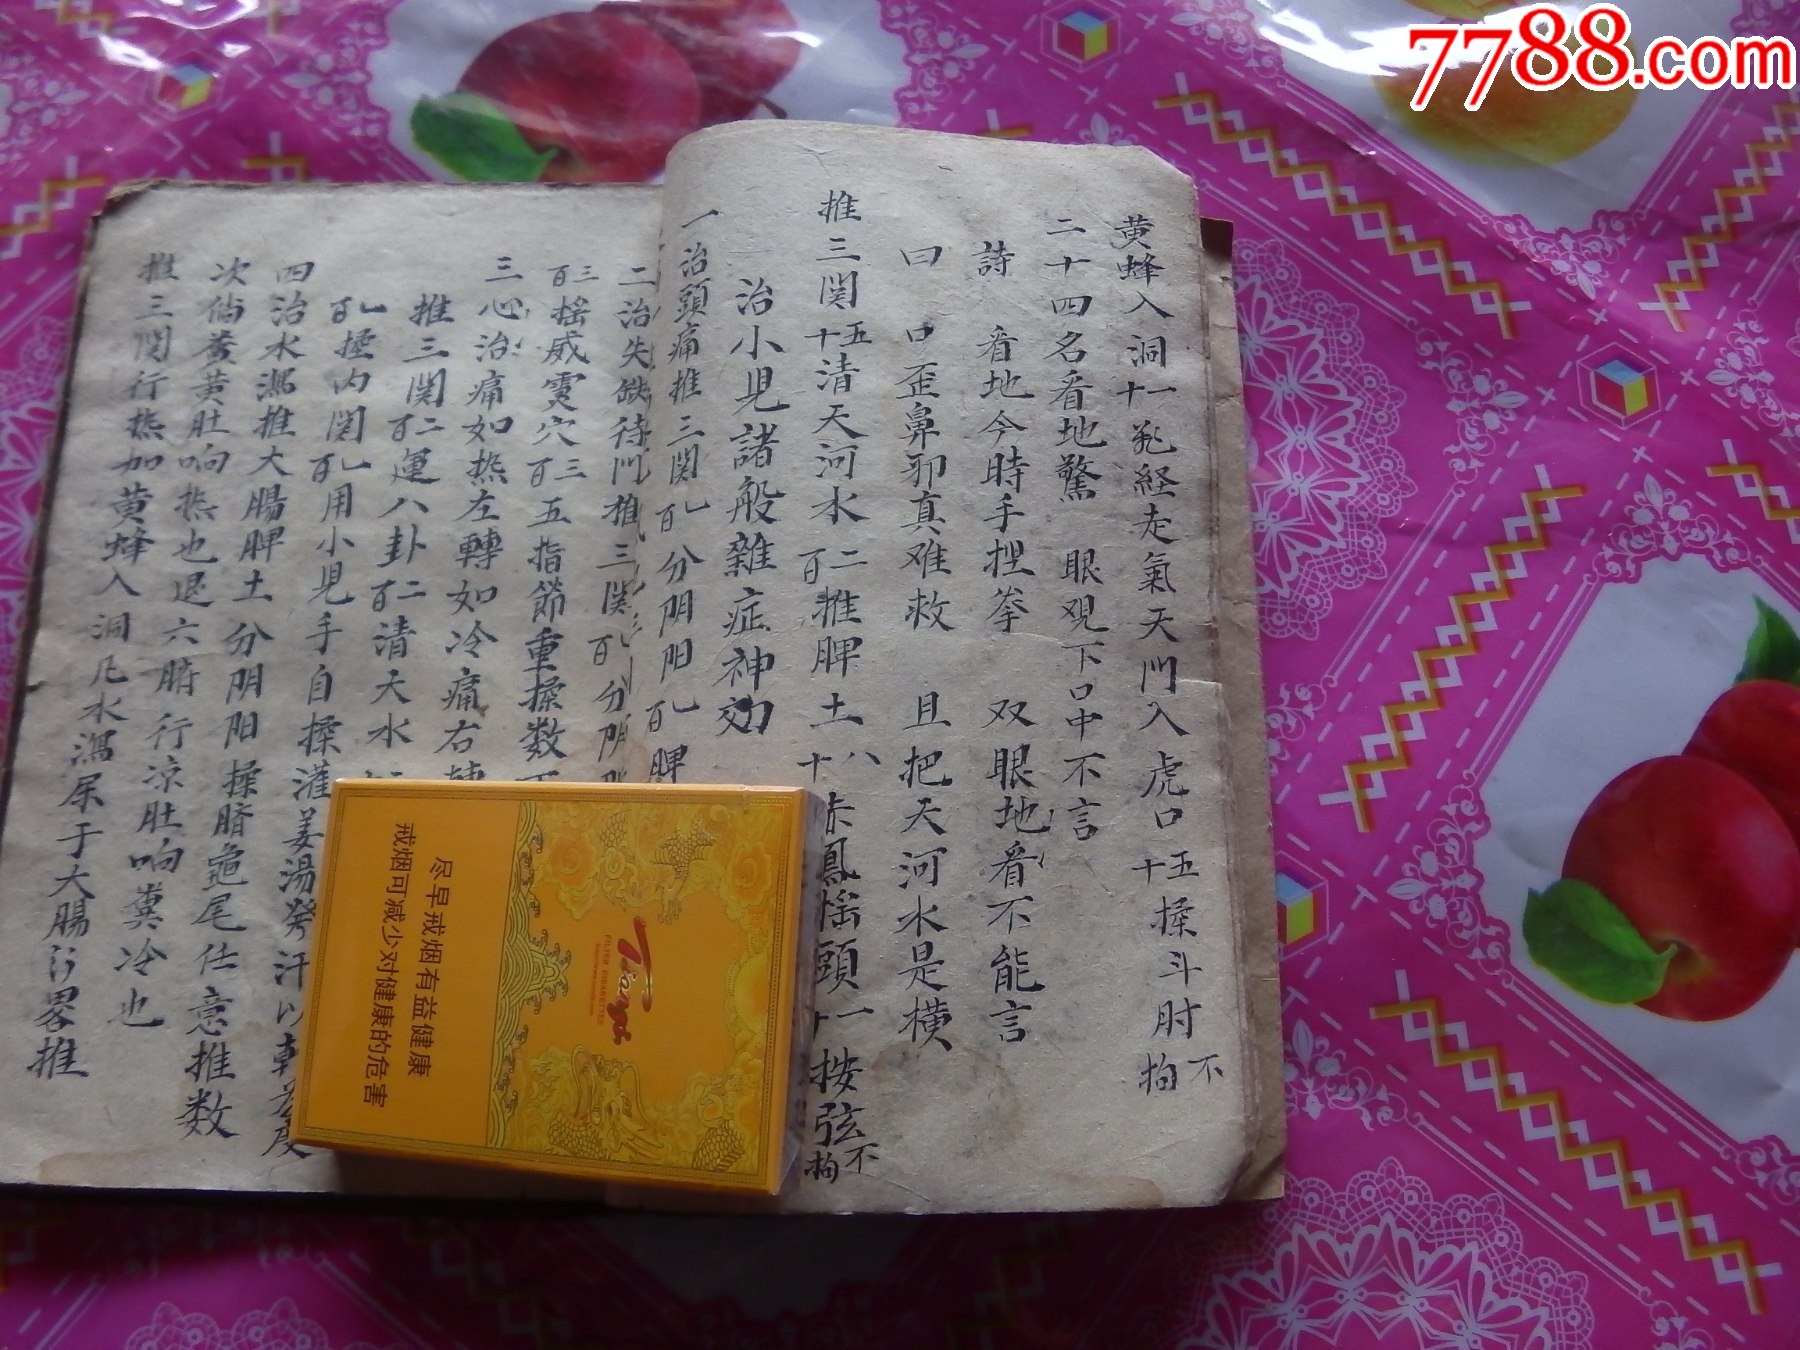 7788.com
黄蜂入洞一十 孔経走氣天门入虎口五十揉斗肘不拘
二十四名看地驚 眼观下口中不言
詩 看地今時手挃拳 双眼地看不能言
曰 口歪鼻邪真难救 且把天河水是横
推三関五十清天河水二百推脾土八十赤鳳摇頭一十按弦不拘
治小児諸般雜症神効
一治頭痛推三関一百分阴阳一百脾
二治失 待 推三関 百分阴
三百摇威灵穴三百五指節重揉数
三心治痛如热左轉如冷痛右轉
推三関二百運八卦二百清天水
一百揉内関一百用小児手自揉灌姜湯發汗以
四治水瀉推大腸脾土分阴阳揉臍龜尾任意推数
次倘 黄肚响热也退六腑行凉肚响糞冷也
推三関行热加黄蜂入洞凡水瀉尿于大腸 畧推
尽早戒烟有益健康
戒烟可减少对健康的危害
FILTER CIGARETTES